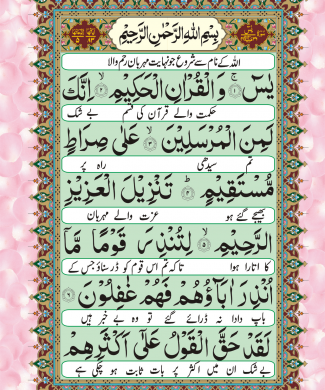 بِسْمِ اللّٰهِ الرَّحْمٰنِ الرَّحِيْمِ
اللہ کے نام سے شروع جو نہایت مہربان رحم والا
يٰسٓ ۚ﴿۱﴾ وَالْقُرْاٰنِ الْحَكِيْمِ ۙ﴿۲﴾ اِنَّكَ
حکمت والے قرآن کی قسم بے شک
لَمِنَ الْمُرْسَلِيْنَ ۙ﴿۳﴾ عَلٰى صِرَاطٍ
تم سیدھی راہ پر
مُّسْتَقِيْمٍ ؕ﴿۴﴾ تَنْزِيْلَ الْعَزِيْزِ
بھیجے گئے ہو عزت والے مہربان
الرَّحِيْمِ ۙ﴿۵﴾ لِتُنْذِرَ قَوْمًا مَّاۤ
کا اتارا ہوا تاکہ تم اس قوم کو ڈر سناؤ جس کے
اُنْذِرَ اٰبَآؤُهُمْ فَهُمْ غٰفِلُوْنَ ﴿۶﴾
باپ دادا نہ ڈرائے گئے تو وہ بے خبر ہیں
لَقَدْ حَقَّ الْقَوْلُ عَلٰۤى اَكْثَرِهِمْ
بے شک ان میں اکثر پر بات ثابت ہو چکی ہے